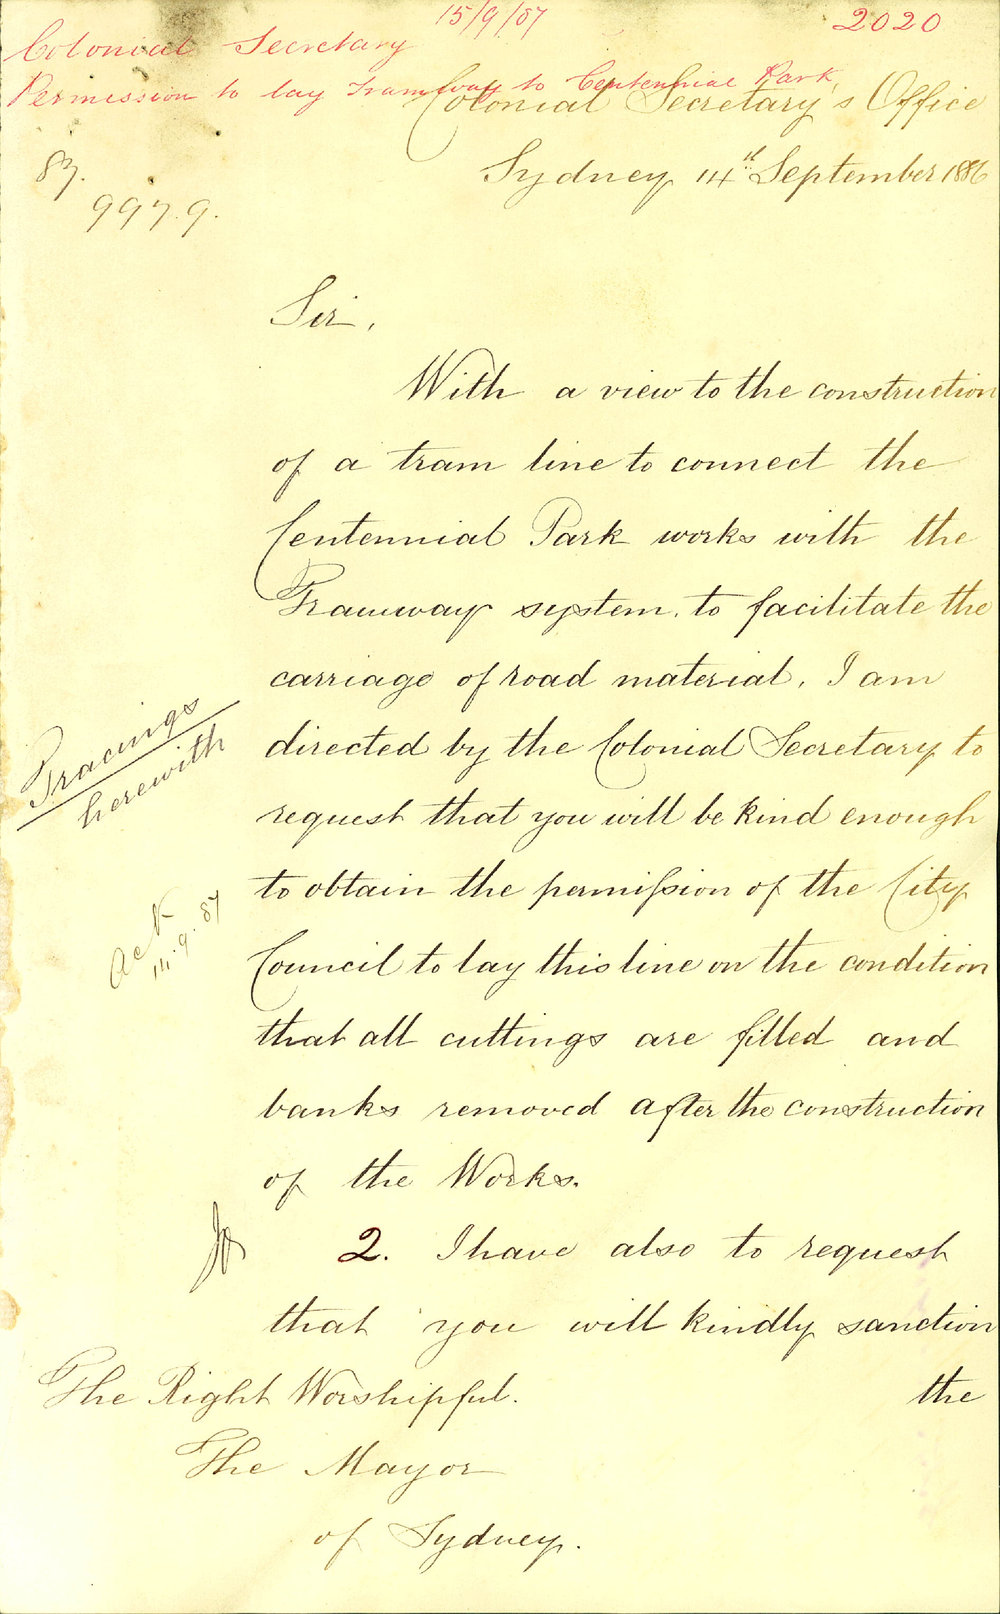 15/9/87
2020
Colonial Secretary
Permission to lay Tramway to Centennial Park
Colonial Secretary's Office
Sydney 14th September 1886
87.
9979.
Sir,
With a view to the construction
of a tram line to connect the
Centennial Park works with the
Tramway system, to facilitate the
carriage of road material, I am
directed by the Colonial Secretary to
request that you will be kind enough
to obtain the permission of the City
Council to lay this line on the condition
that all cuttings are filled and
banks removed after the construction
of the Works.
Tracings
herewith
Ack
14.9.87
2. I have also to request
that you will kindly sanction
the
The Right Worshipful.
The Mayor
of Sydney.